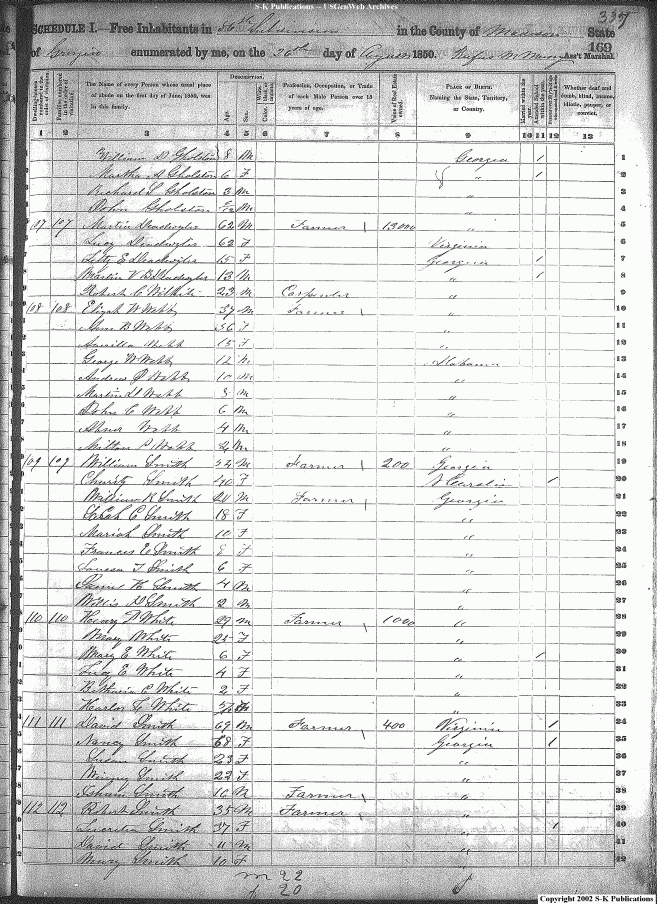 S-K Publications -- USGenWeb Archives
337
SCHEDULE I. Free Inhabitants in 56th Subdivision in the County of Madison State
of Georgia enumerated by me, on the 26th day of August 1850. Ass't Marshal.
169
The Name of every Person whose usual place of abode on the first day of June, 1850, was in this family.
Description.
Age. Sex.
Profession, Occupation, or Trade of each Male Person over 15 years of age.
Value of Real Estate owned.
Place of Birth. Naming the State, Territory, or Country.
Married within the year.
Whether deaf and dumb, blind, insane, idiotic, pauper, or convict.
1 2 3 4 5 6 7 8 9 10 11 12 13
William D Gholston 8 M Georgia 1 1
Martha A Gholston 6 F " 1 2
Richard S Gholston 3 M " 3
John Gholston M " 4
107 107 Martin Deadwyler 62 M Farmer 13000 " 5
Lucy Deadwyler 62 F Virginia 6
E Deadwyler 15 F Georgia 1 7
Martin V B Deadwyler 13 M " 1 8
Robert C Wilhite 23 M Carpenter " 9
108 108 Elijah W Webb 37 M Farmer " 10
B Webb 36 F " 11
Webb 15 F " 12
George W Webb 12 M Alabama 13
Andrew J Webb 10 M " 14
Martin Webb 8 M " 15
John C Webb 6 M " 16
Abner Webb 4 M " 17
Milton P Webb 2 M " 18
109 109 William Smith 52 M Farmer 200 Georgia 19
Charity Smith 40 F N Carolin 1 20
William R Smith 20 M Farmer Georgia 21
Sarah C Smith 18 F " 22
Mariah Smith 10 F " 23
Frances E Smith 8 F " 24
T Smith 6 F " 25
Smith 4 M " 26
Willis D Smith 2 M " 27
110 110 Henry P White 29 M Farmer 1000 " 28
Mary White 25 F " 29
Mary E White 6 F " 1 30
Lucy E White 4 F " 31
C White 2 F " 32
White M " 33
111 111 David Smith 69 M Farmer 400 Virginia 1 34
Nancy Smith 68 F Georgia 1 35
Susan Smith 23 F " 36
Smith 22 F " 37
Isham Smith 16 M Farmer " 38
112 112 Robert Smith 35 M Farmer " 39
Smith 37 F " 1 40
David Smith 11 M " 41
Mary Smith 10 F " 42
M 22
F 20
Copyright 2002 S-K Publications